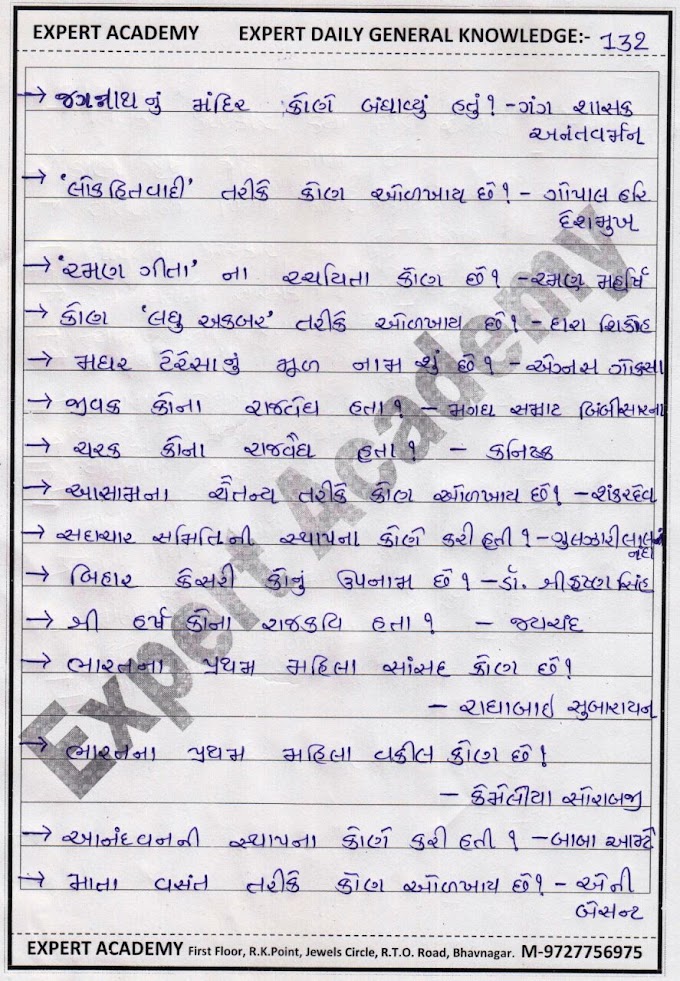 EXPERT ACADEMY EXPERT DAILY GENERAL KNOWLEDGE:- 132
→ જગન્નાથનું મંદિર કોણે બંધાવ્યું હતું? - ગંગ શાસક
અનંતવર્મન
→ 'લોકહિતવાદી' તરીકે કોણ ઓળખાય છે? - ગોપાલ હરિ
દેશમુખ
→ 'રમણ ગીતા' ના રચયિતા કોણ છે? - રમણ મહર્ષિ
→ કોણ 'લઘુ અકબર' તરીકે ઓળખાય છે? - દારા શિકોહ
→ મધર ટેરેસાનું મૂળ નામ શું છે? - એગ્નસ ગોંક્સા
→ જીવક કોના રાજવૈદ્ય હતા? - મગધ સમ્રાટ બિંબીસારના
→ ચરક કોના રાજવૈદ્ય હતા? - કનિષ્ક
→ આસામના ચૈતન્ય તરીકે કોણ ઓળખાય છે? - શંકરદેવ
→ સદાચાર સમિતિની સ્થાપના કોણે કરી હતી? - ગુલઝારીલાલ
નંદા
→ બિહાર કેસરી કોનું ઉપનામ છે? - ડૉ. શ્રીકૃષ્ણ સિંહ
→ શ્રી હર્ષ કોના રાજકવિ હતા? - જયચંદ
→ ભારતના પ્રથમ મહિલા સાંસદ કોણ છે?
- રાધાબાઇ સુબારાયન
→ ભારતના પ્રથમ મહિલા વકીલ કોણ છે?
- કેર્મેલીયા સોરાબજી
→ આનંદવનની સ્થાપના કોણે કરી હતી? - બાબા આમ્ટે
→ માતા વસંત તરીકે કોણ ઓળખાય છે? - એની
બેસન્ટ
Expert Academy
EXPERT ACADEMY First Floor, R.K.Point, Jewels Circle, R.T.O. Road, Bhavnagar. M-9727756975